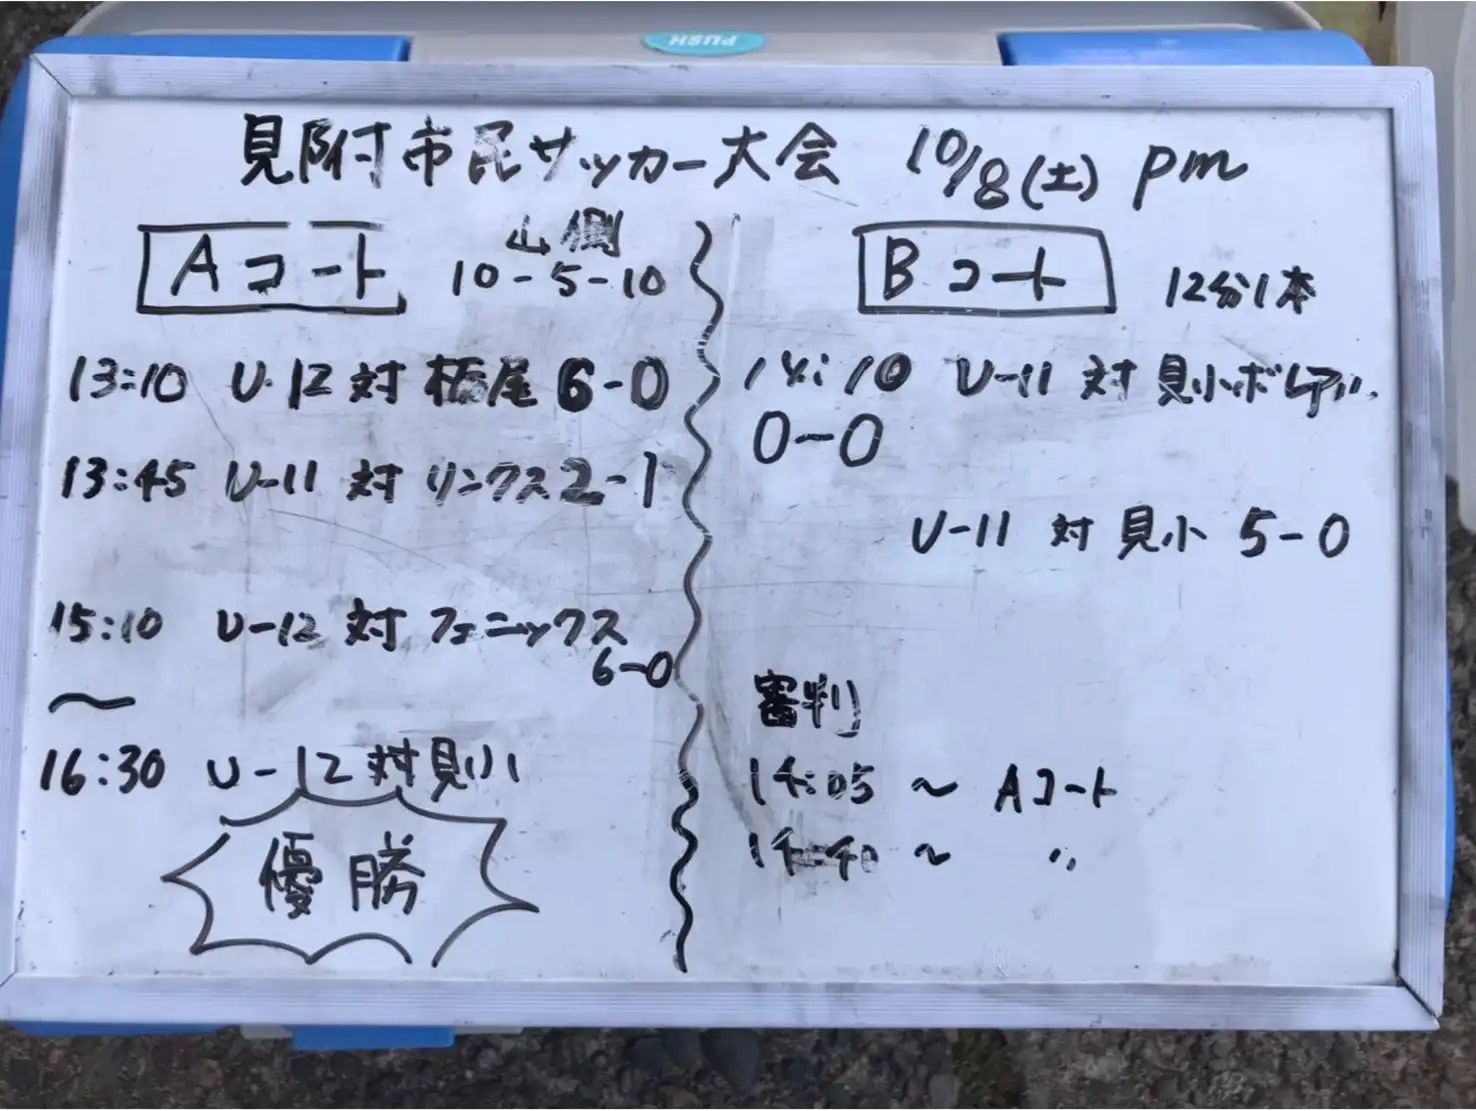 PUSH
見附市民サッカー大会 10/8(土) pm
Aコート 山側
10-5-10
13:10 U-12 対 栃尾 6-0
13:45 U-11 対 リンクス 2-1
15:10 U-12 対 フェニックス
6-0
〜
16:30 U-12 対 見小
優勝
Bコート 12分1本
14:10 U-11 対 見小ボレアル
0-0
U-11 対 見小 5-0
審判
14:05 〜 Aコート
14:40 〜 〃